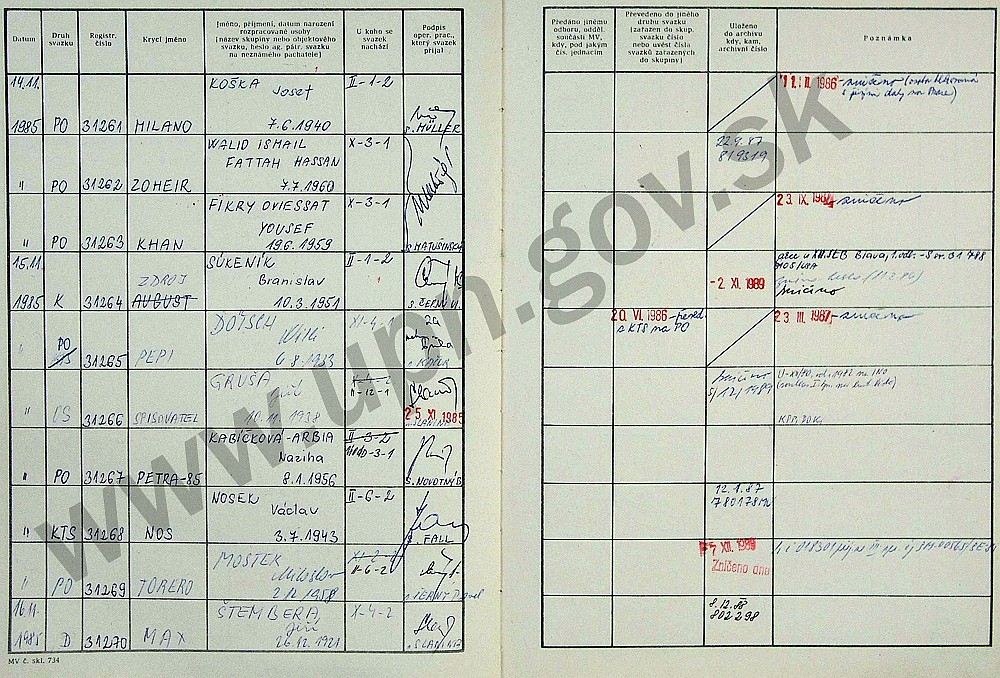 Datum
Druh svazku
Registr. číslo
Krycí jméno
Jméno, příjmení, datum narození
rozpracované osoby
[název skupiny nebo objektového
svazku, heslo ag. pátr. svazku
na neznámého pachatele]
U koho se
svazek
nachází
Podpis
oper. prac.,
který svazek
přijal
Předáno jinému
odboru, odděl.
součásti MV,
kdy, pod jakým
čís. jednacím
Převedeno do jiného
druhu svazku
[zařazen do skup.
svazku číslo
nebo uvést čísla
svazků zařazených
do skupiny]
Uloženo
do archivu
kdy, kam,
archivní číslo
Poznámka
14.11. KOŠKA II-1-2 11. II. 1986 - zničeno
Josef
1985 PO 31261 MILANO 7.6.1940 s. MÜLLER
WALID ISMAIL X-3-1 22.9.87
FATTAH HASSAN 819319
" PO 31262 ZOHEIR 7.7.1960
FIKRY OVIESSAT X-3-1 23. IX. 1987 - zničeno
YOUSEF
" PO 31263 KHAN 19.6.1959 s. MATUSINSKÝ
15.11. SUKENÍK II-1-2
ZDROJ Branislav - 2. XI. 1989
1985 K 31264 AUGUST 10.3.1951 s. ČERNÝ
DÖTSCH XI-4 za 20. VI. 1986 - převed. 23. III. 1987 - zničeno
PO Willi s KTS na PO
" 31265 PEPI 6.8.1933
GRUŠA X-4-2 zničeno
Jiří II-12-1 5/12/1989
" OS 31266 SPISOVATEL 10.11.1938 25. XI. 1985
s. SLANINA
KABÍČKOVÁ-ARBIA II-3-2
Naziha
" PO 31267 PETRA-85 8.1.1956 s. NOVOTNÝ B
NOSEK II-6-2 12.1.87
Václav 780178
" KTS 31268 NOS 3.7.1943 s. FALL
MOSTEK XI-2-2 7. XII. 1989
Miloslav II-6-2 Zničeno dne
" PO 31269 TORERO 2.12.1958
16.11. ŠTEMBERA X-4-2 8.12.
Jiří 802298
1985 D 31270 MAX 26.12.1921 s. SLANINA
MV č. skl. 734
www.upn.gov.sk